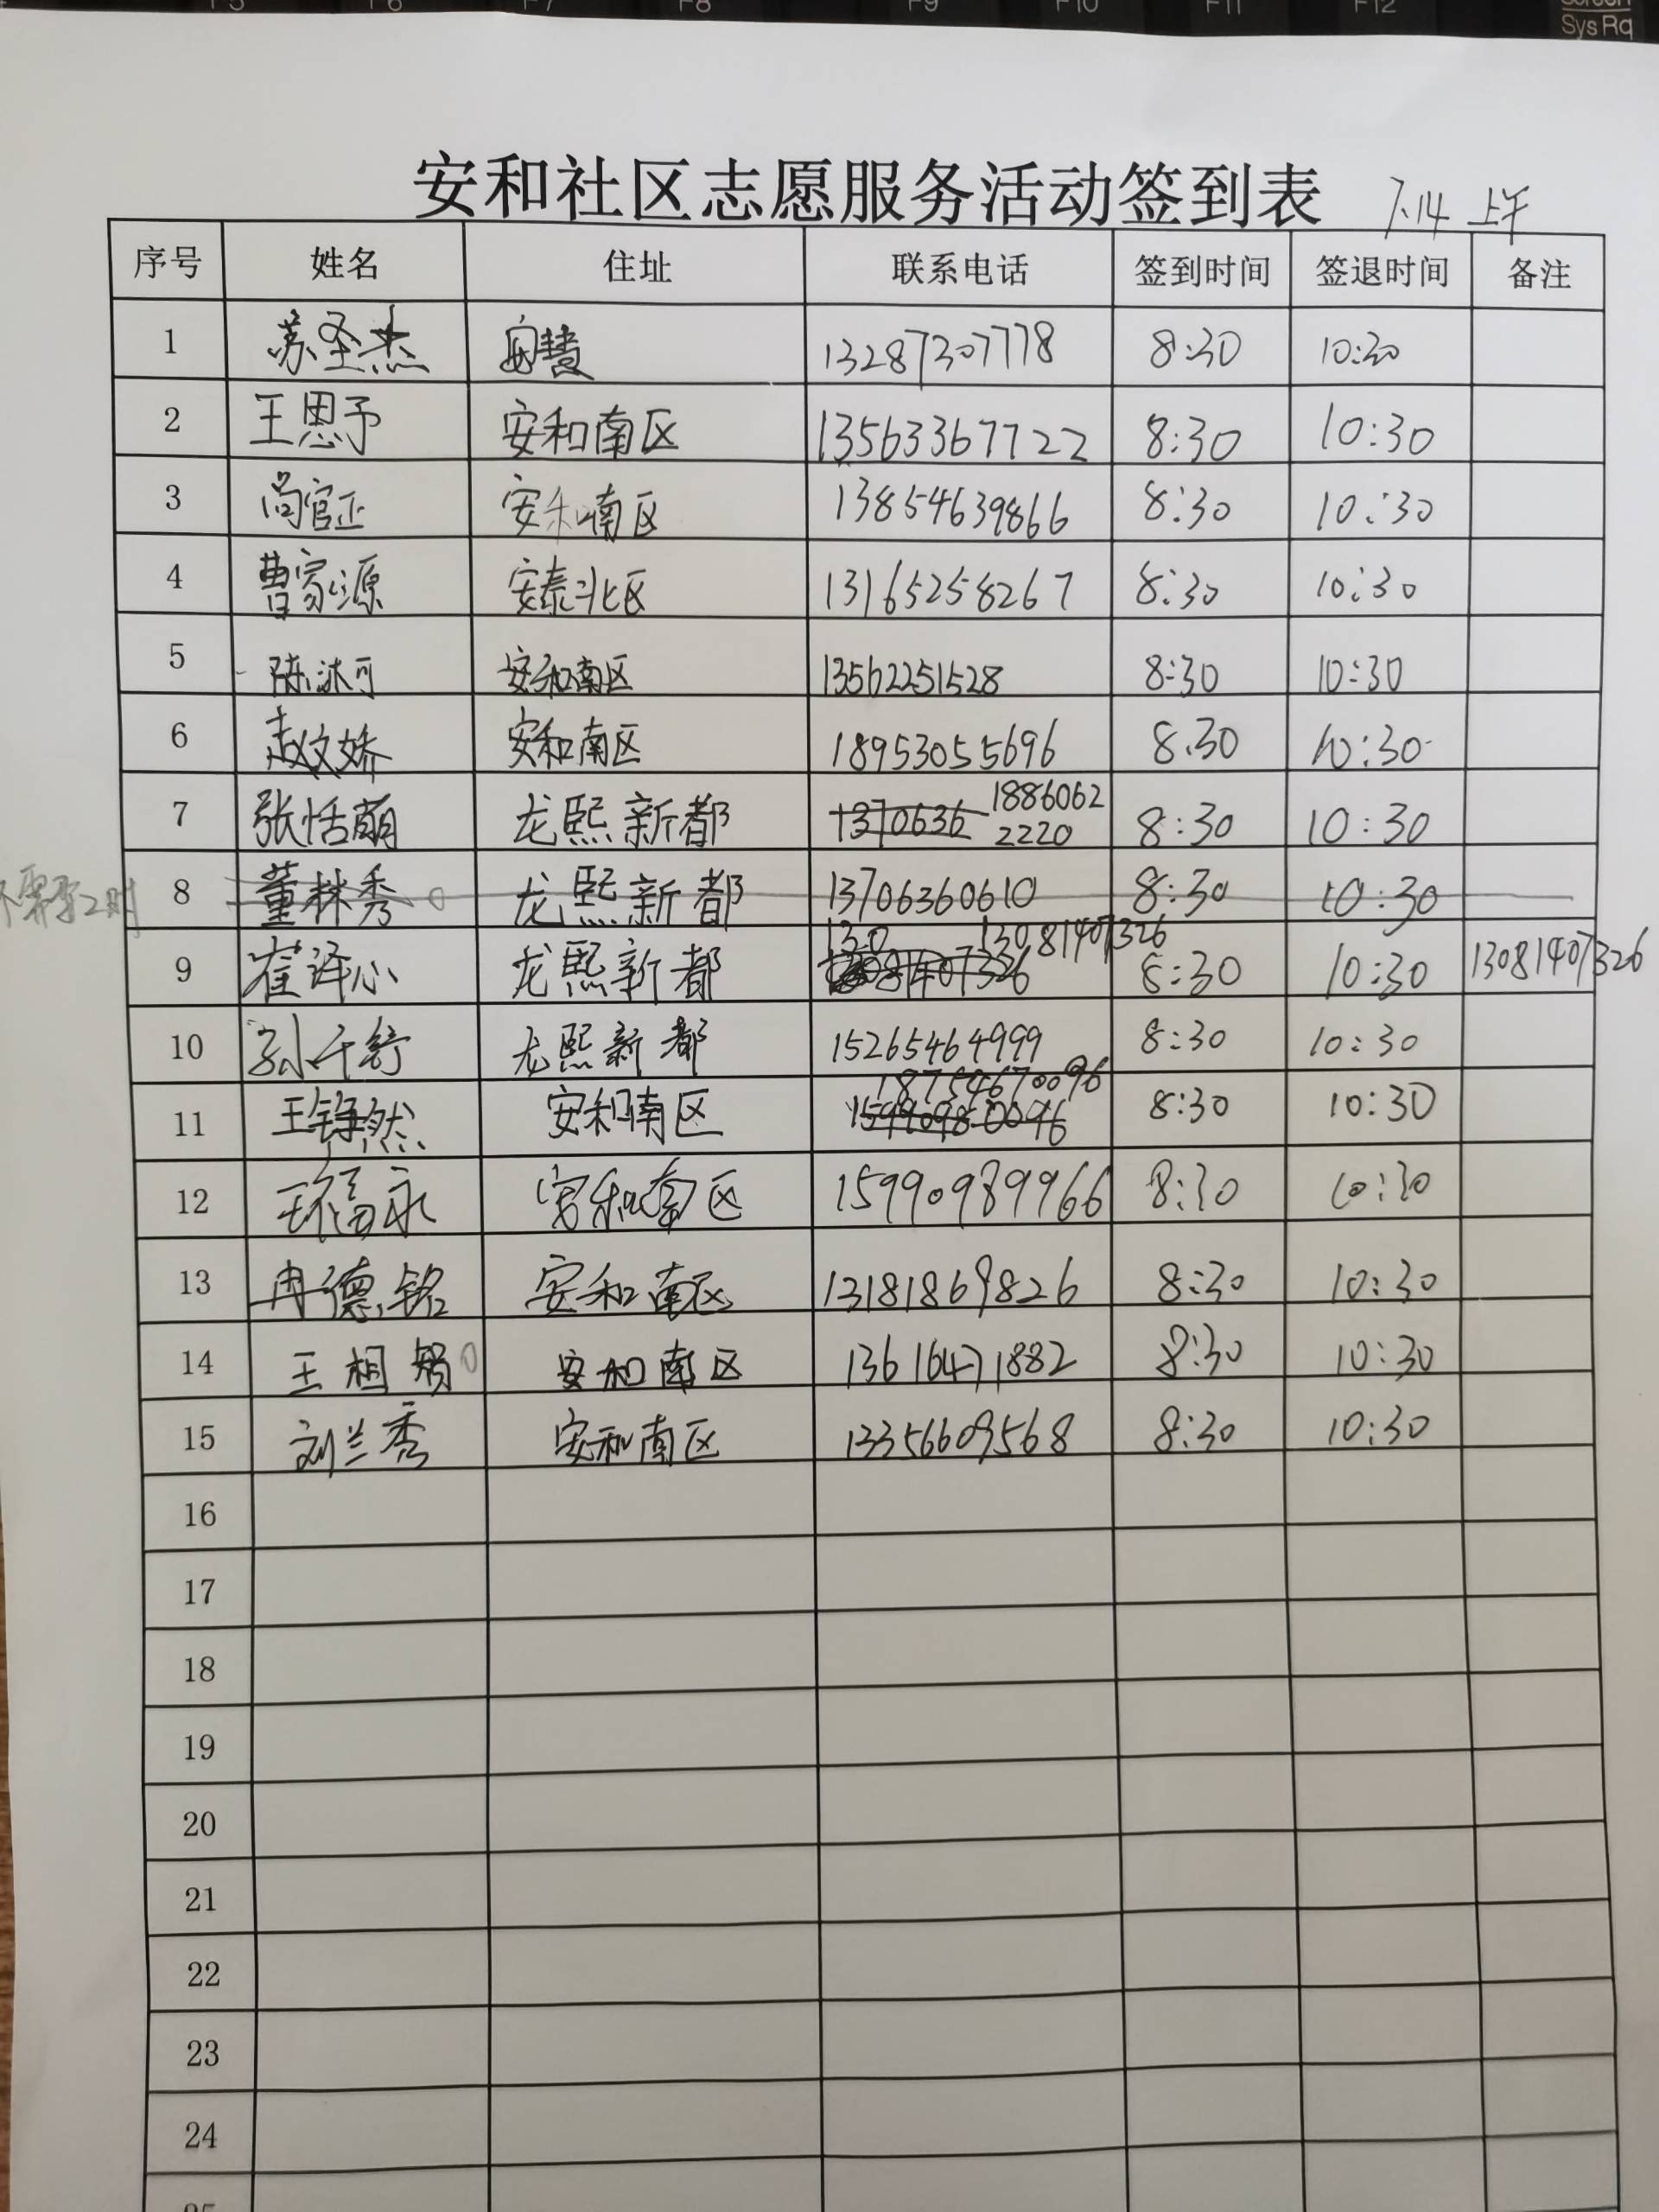 F5 F6 F7 F8 F9 F10 F11 F12
Sys Rq
安和社区志愿服务活动签到表 7.14 上午
序号 姓名 住址 联系电话 签到时间 签退时间 备注
1 苏圣杰 安慧 13287307778 8:30 10:30
2 王思予 安和南区 13563367722 8:30 10:30
3 尚官正 安和南区 13854639866 8:30 10:30
4 曹家源 安泰北区 13165258267 8:30 10:30
5 陈沐可 安和南区 13562251528 8:30 10:30
6 赵文娇 安和南区 18953055696 8:30 10:30
7 张恬萌 龙熙新都 1370636 18860622220 8:30 10:30
8 董林秀 龙熙新都 13706360610 8:30 10:30
9 崔译心 龙熙新都 130 13081407326 8:30 10:30 13081407326
10 孙千舒 龙熙新都 15265464999 8:30 10:30
11 王铮然 安和南区 18754670096 8:30 10:30
12 王福永 安和南区 15990989966 8:30 10:30
13 冉德铭 安和南区 13181869826 8:30 10:30
14 王相 安和南区 13616471882 8:30 10:30
15 刘兰秀 安和南区 13356609568 8:30 10:30
16
17
18
19
20
21
22
23
24